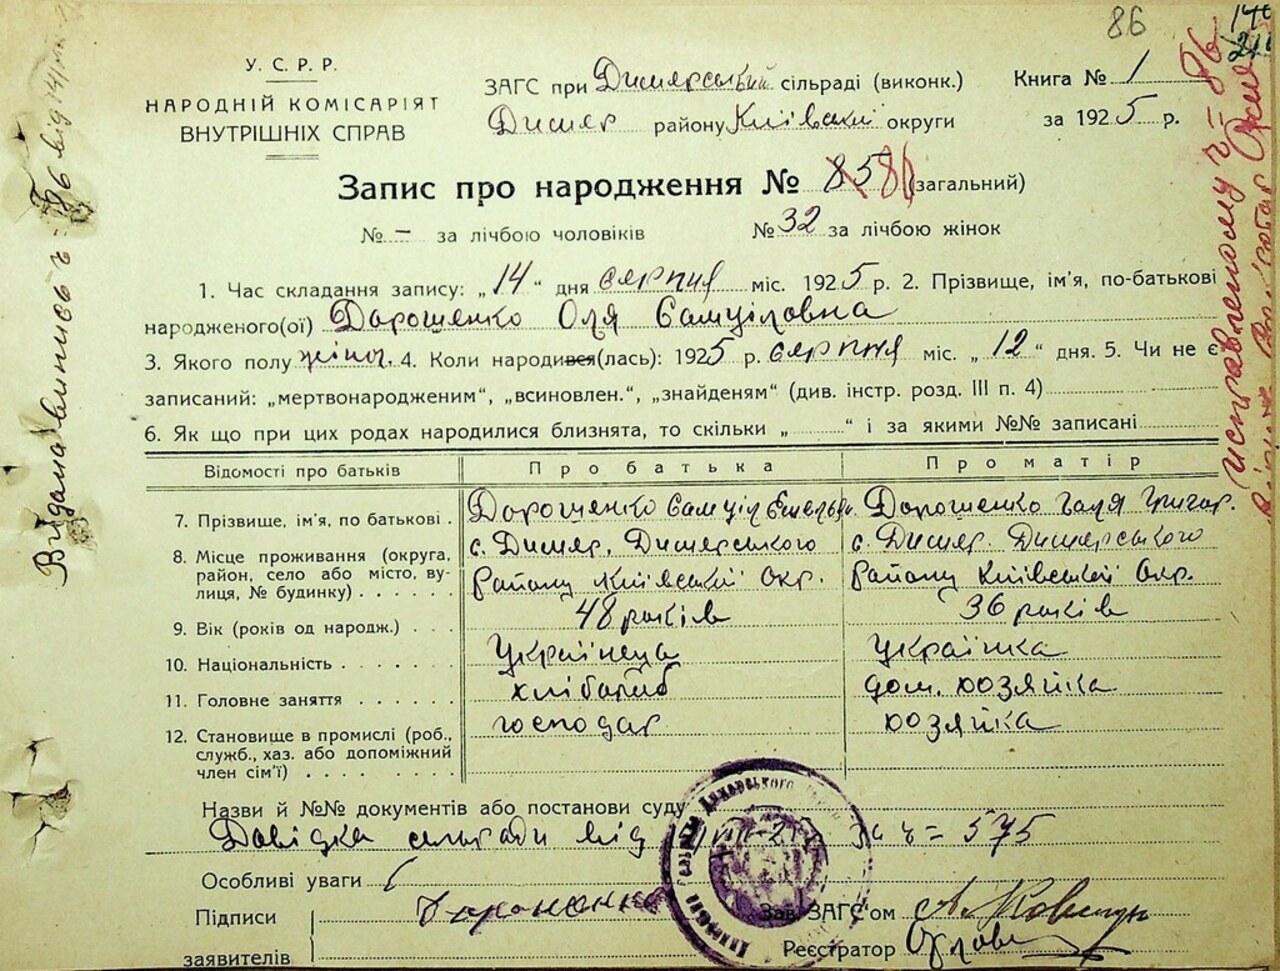 86
У. С. Р. Р.
НАРОДНІЙ КОМІСАРІЯТ
ВНУТРІШНІХ СПРАВ
ЗАГС при Димерський сільраді (виконк.)
Димер району Київської округи
Книга № 1
за 1925 р.
Запис про народження № 85 86 (загальний)
№ – за лічбою чоловіків № 32 за лічбою жінок
1. Час складання запису: „14“ дня серпня міс. 1925 р. 2. Прізвище, ім'я, по-батькові
народженого(ої) Дорошенко Оля Самуіловна
3. Якого полу жіноч. 4. Коли народився(лась): 1925 р. серпня міс. „12“ дня. 5. Чи не є
записаний: „мертвонародженим“, „всиновлен.“, „знайденям“ (див. інстр. розд. III п. 4)
6. Як що при цих родах народилися близнята, то скільки „ “ і за якими №№ записані
Відомості про батьків Про батька Про матір
7. Прізвище, ім'я, по батькові . Дорошенко Самуіл Дорошенко Галя Григор.
8. Місце проживання (округа, район, село або місто, вулиця, № будинку) . . . . . с. Димер, Димерського с. Димер. Димерського
району Київської Окр. району Київської Окр.
9. Вік (років од народж.) . . . 48 років 36 років
10. Національність . . . . . . Українець Українка
11. Головне заняття . . . . . . хлібороб дом. хозяйка
12. Становище в промислі (роб., служб., хаз. або допоміжний член сім'ї) . . . . . . . господар хозяйка
Назви й №№ документів або постанови суду
Довідка сільради від за ч= 575
Особливі уваги
Підписи
заявителів
Зав. ЗАГС'ом
Реєстратор